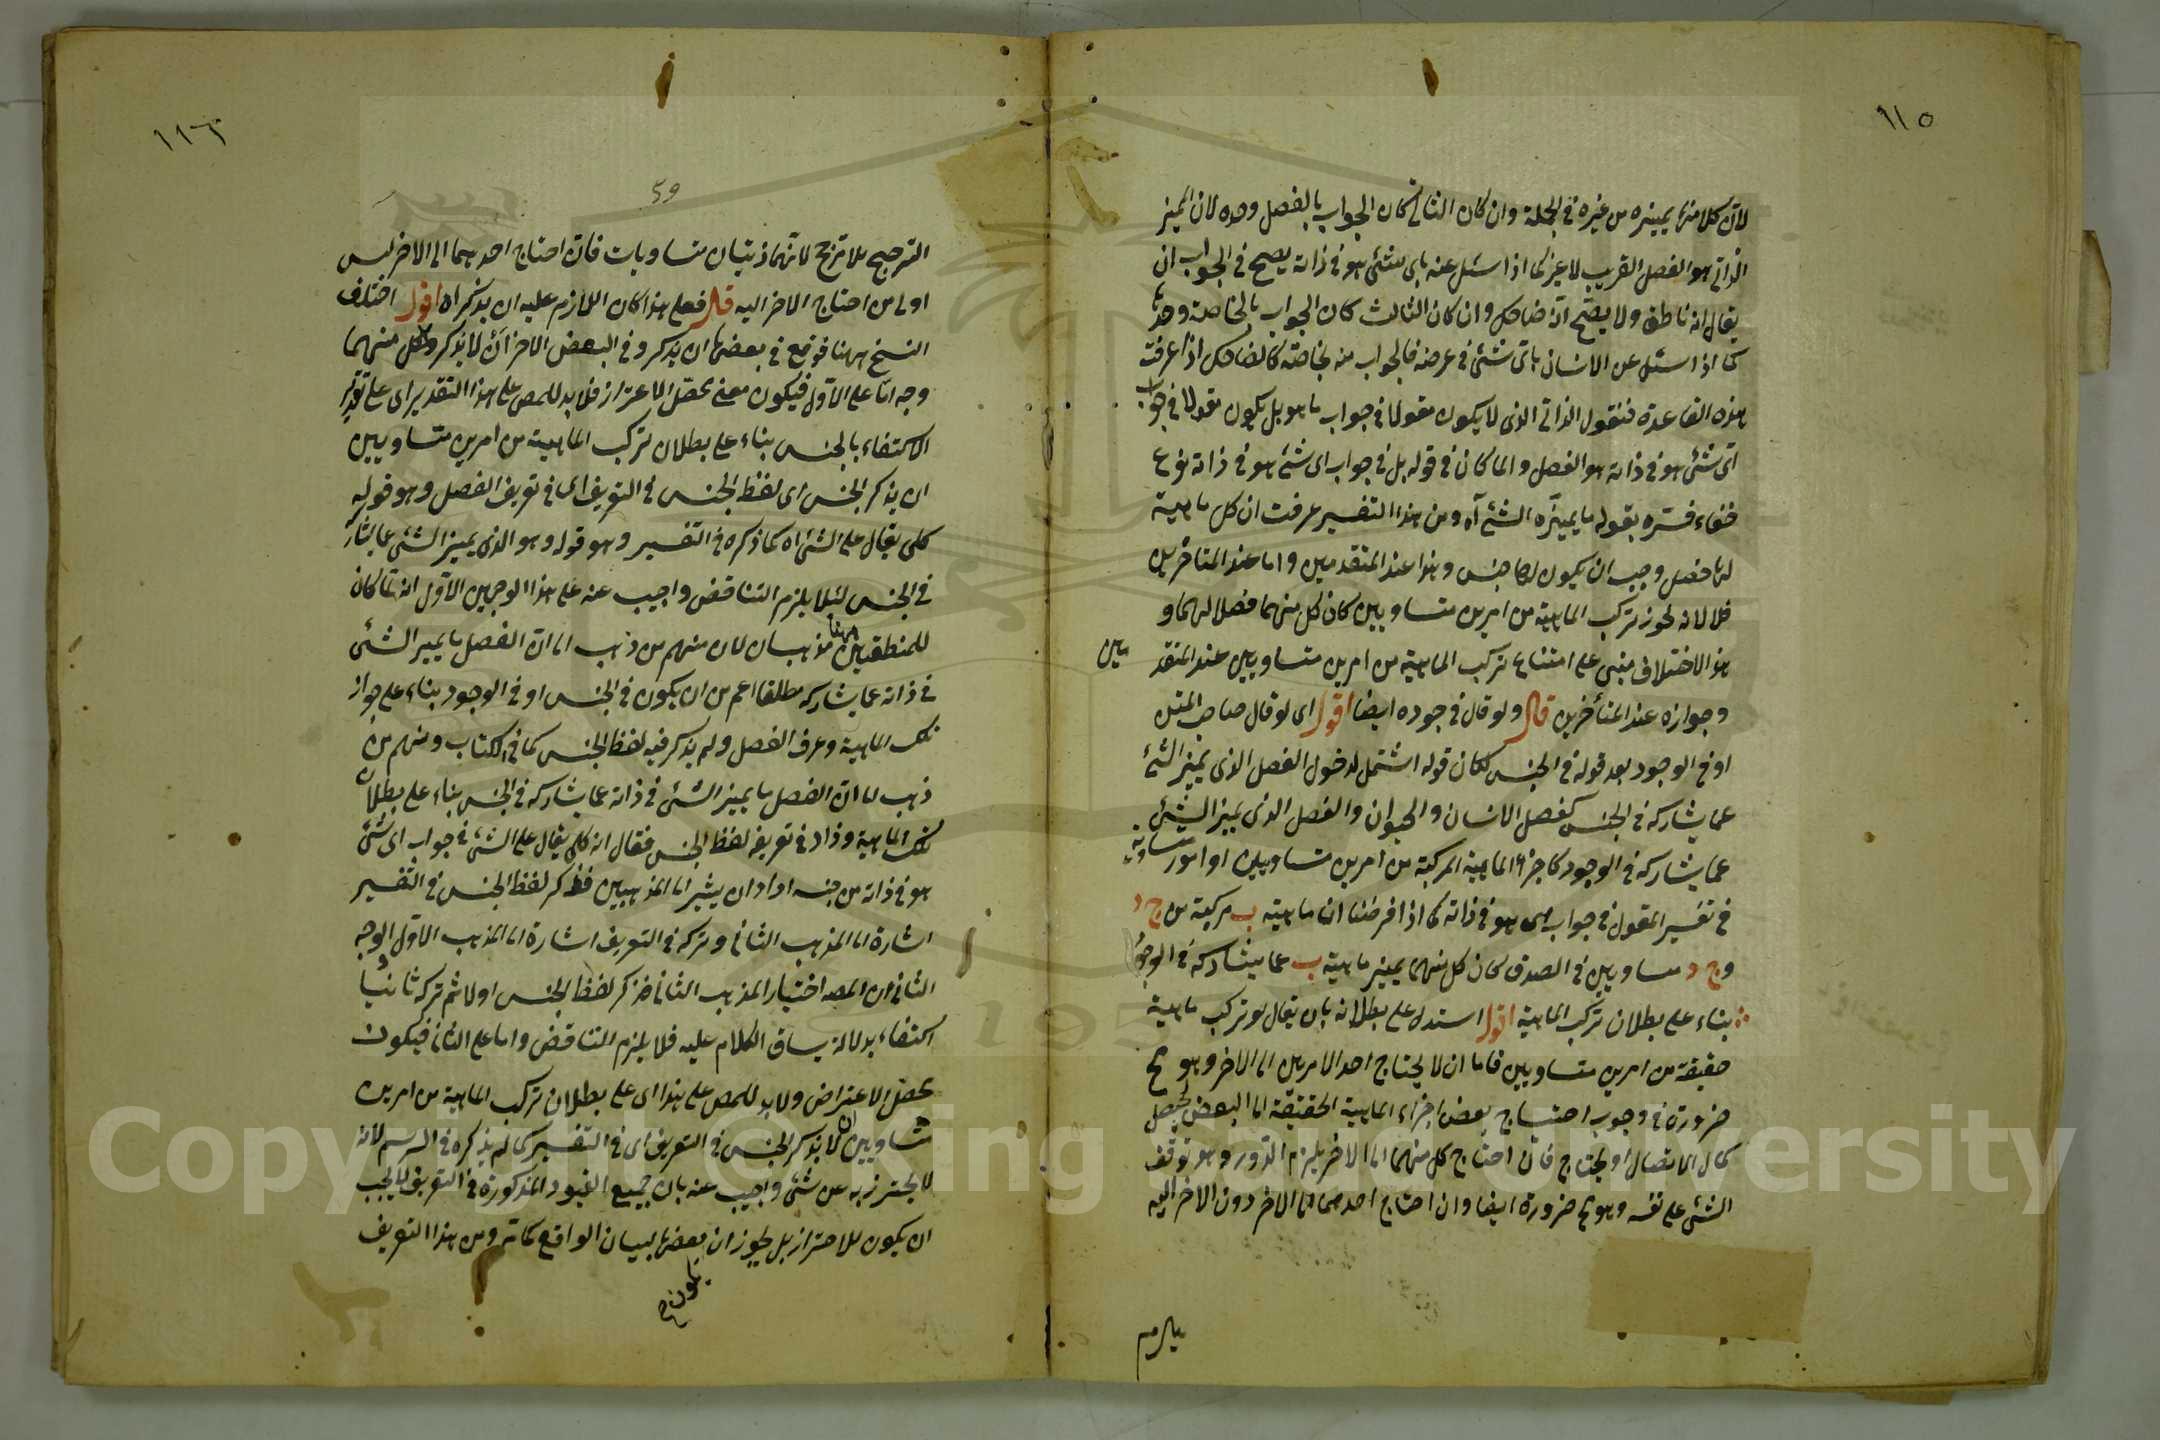 ١١٥
لان كلا منها يميزه من غيره في الجملة وان كان الثاني كان الجواب بالفصل وحده لان المميز
الذاتي هو الفصل القريب لا غير كما اذا سئل عنه باي شئ هو في ذاته يصح في الجواب ان
يقال انه ناطق ولا يصح انه ضاحك وان كان الثالث كان الجواب بالخاصة وحدها
كما اذا سئل عن الانسان باي شئ في عرضه فالجواب منه بخاصته كالضاحك اذا عرفت
هذه القاعدة فنقول الذاتي الذي لا يكون مقولا في جواب ما هو بل يكون مقولا في جواب
اي شئ هو في ذاته هو الفصل ولما كان في قوله بل في جواب اي شئ هو في ذاته نوع
خفاء فسره بقوله ما يميزه الشئ آه ومن هذا التفسير عرفت ان كل ماهية
لها فصل وجب ان يكون لها جنس وهذا عند المتقدمين واما عند المتأخرين
فلا لانه يجوز تركب الماهية من امرين متساويين كان كل منهما فصلا لهما و
هذا الاختلاف مبني على امتناع تركب الماهية من امرين متساويين عند المتقد
مين
وجوازه عند المتأخرين قال ولو قال في وجوده ايضا اقول اي لو قال صاحب المتن
او في الوجود بعد قوله في الجنس لكان قوله اشتمل لدخول الفصل الذي يميز الشئ
عما يشاركه في الجنس كفصل الانسان والحيوان والفصل الذي يميز الشئ
عما يشاركه في الوجود كاجزاء الماهية المركبة من امرين متساويين او امور متساوية
في تفسير المقول في جواب اي هو في ذاته كما اذا فرضنا ان ماهية ب مركبة من ج د
و ج د متساويين في الصدق كان كل منهما يميز ماهية ب عما يشاركه في الوجود
بناء على بطلان تركب الماهية اقول استدل على بطلانه بان يقال لو تركب ماهية
حقيقة من امرين متساويين فاما ان لا يحتاج احد الامرين الى الاخر وهو مح
ضرورة في وجوب احتياج بعض اجزاء الماهية الحقيقة الى البعض ليحصل
كمال الاتصال او يحتاج فان احتاج كل منهما الى الاخر يلزم الدور وهو توقف
الشئ على نفسه وهو مح ضرورة ايضا وان احتاج احدهما الى الاخر دون الاخر اليه
يلزم
١١٦
59
الترجيح بلا ترجح لانهما ذاتيان متساويات فان احتاج احدهما الى الاخر ليس
اولى من احتاج الاخر اليه قال فعلى هذا كان اللازم عليه ان يذكر اه اقول اختلف
النسخ ههنا فوقع في بعضها ان يذكر وفي البعض الاخر ان لا يذكر ولكل منهما
وجه اما على الاول فيكون معنى محصل الاعتراز فلا بد للمص على هذا التقدير اي على تقدير
الاكتفاء بالجنس بناء على بطلان تركب الماهية من امرين متساويين
ان يذكر الجنس اي لفظ الجنس في التعريف اي في تعريف الفصل وهو قوله
كلى يقال على الشئ اه كما ذكره في التفسير وهو قوله وهو الذي يميز الشئ عما يشاركه
في الجنس لئلا يلزم التناقض واجيب عنه على هذا الوجهين الاول انه لما كان
للمنطقيين ههنا مذهبان لان منهم من ذهب الى ان الفصل ما يميز الشئ
في ذاته عما يشاركه مطلقا اعم من ان يكون في الجنس او في الوجود بناء على جواز
تلك الماهية وعرف الفصل ولم يذكر فيه لفظ الجنس كما في الكتاب ومنهم من
ذهب الى ان الفصل ما يميز الشئ في ذاته عما يشاركه في الجنس بناء على بطلان
تلك الماهية وزاد في تعريفه لفظ الجنس فقال انه كلي يقال على الشئ في جواب اي شئ
هو في ذاته من جنسه اراد ان يشير الى المذهبين فذكر لفظ الجنس في التفسير
اشارة الى المذهب الثاني وتركه في التعريف اشارة الى المذهب الاول الوجه
الثاني ان المصه اختيار المذهب الثاني فذكر لفظ الجنس اولا ثم تركه ثانيا
اكتفاء بدلالة سياق الكلام عليه فلا يلزم التناقض واما على الثاني فيكون
محصل الاعتراض ولا بد للمص على هذا اي على بطلان تركب الماهية من امرين
متساويين ان لا يذكر الجنس في التعريف اي في التفسير كما لم يذكره في الرسم لانه
لا يحترز به عن شئ واجيب عنه بان جميع القيود المذكورة في التعريف لا يجب
ان يكون للاحتراز بل يجوز ان بعضها لبيان الواقع كما تم ومن هذا التعريف